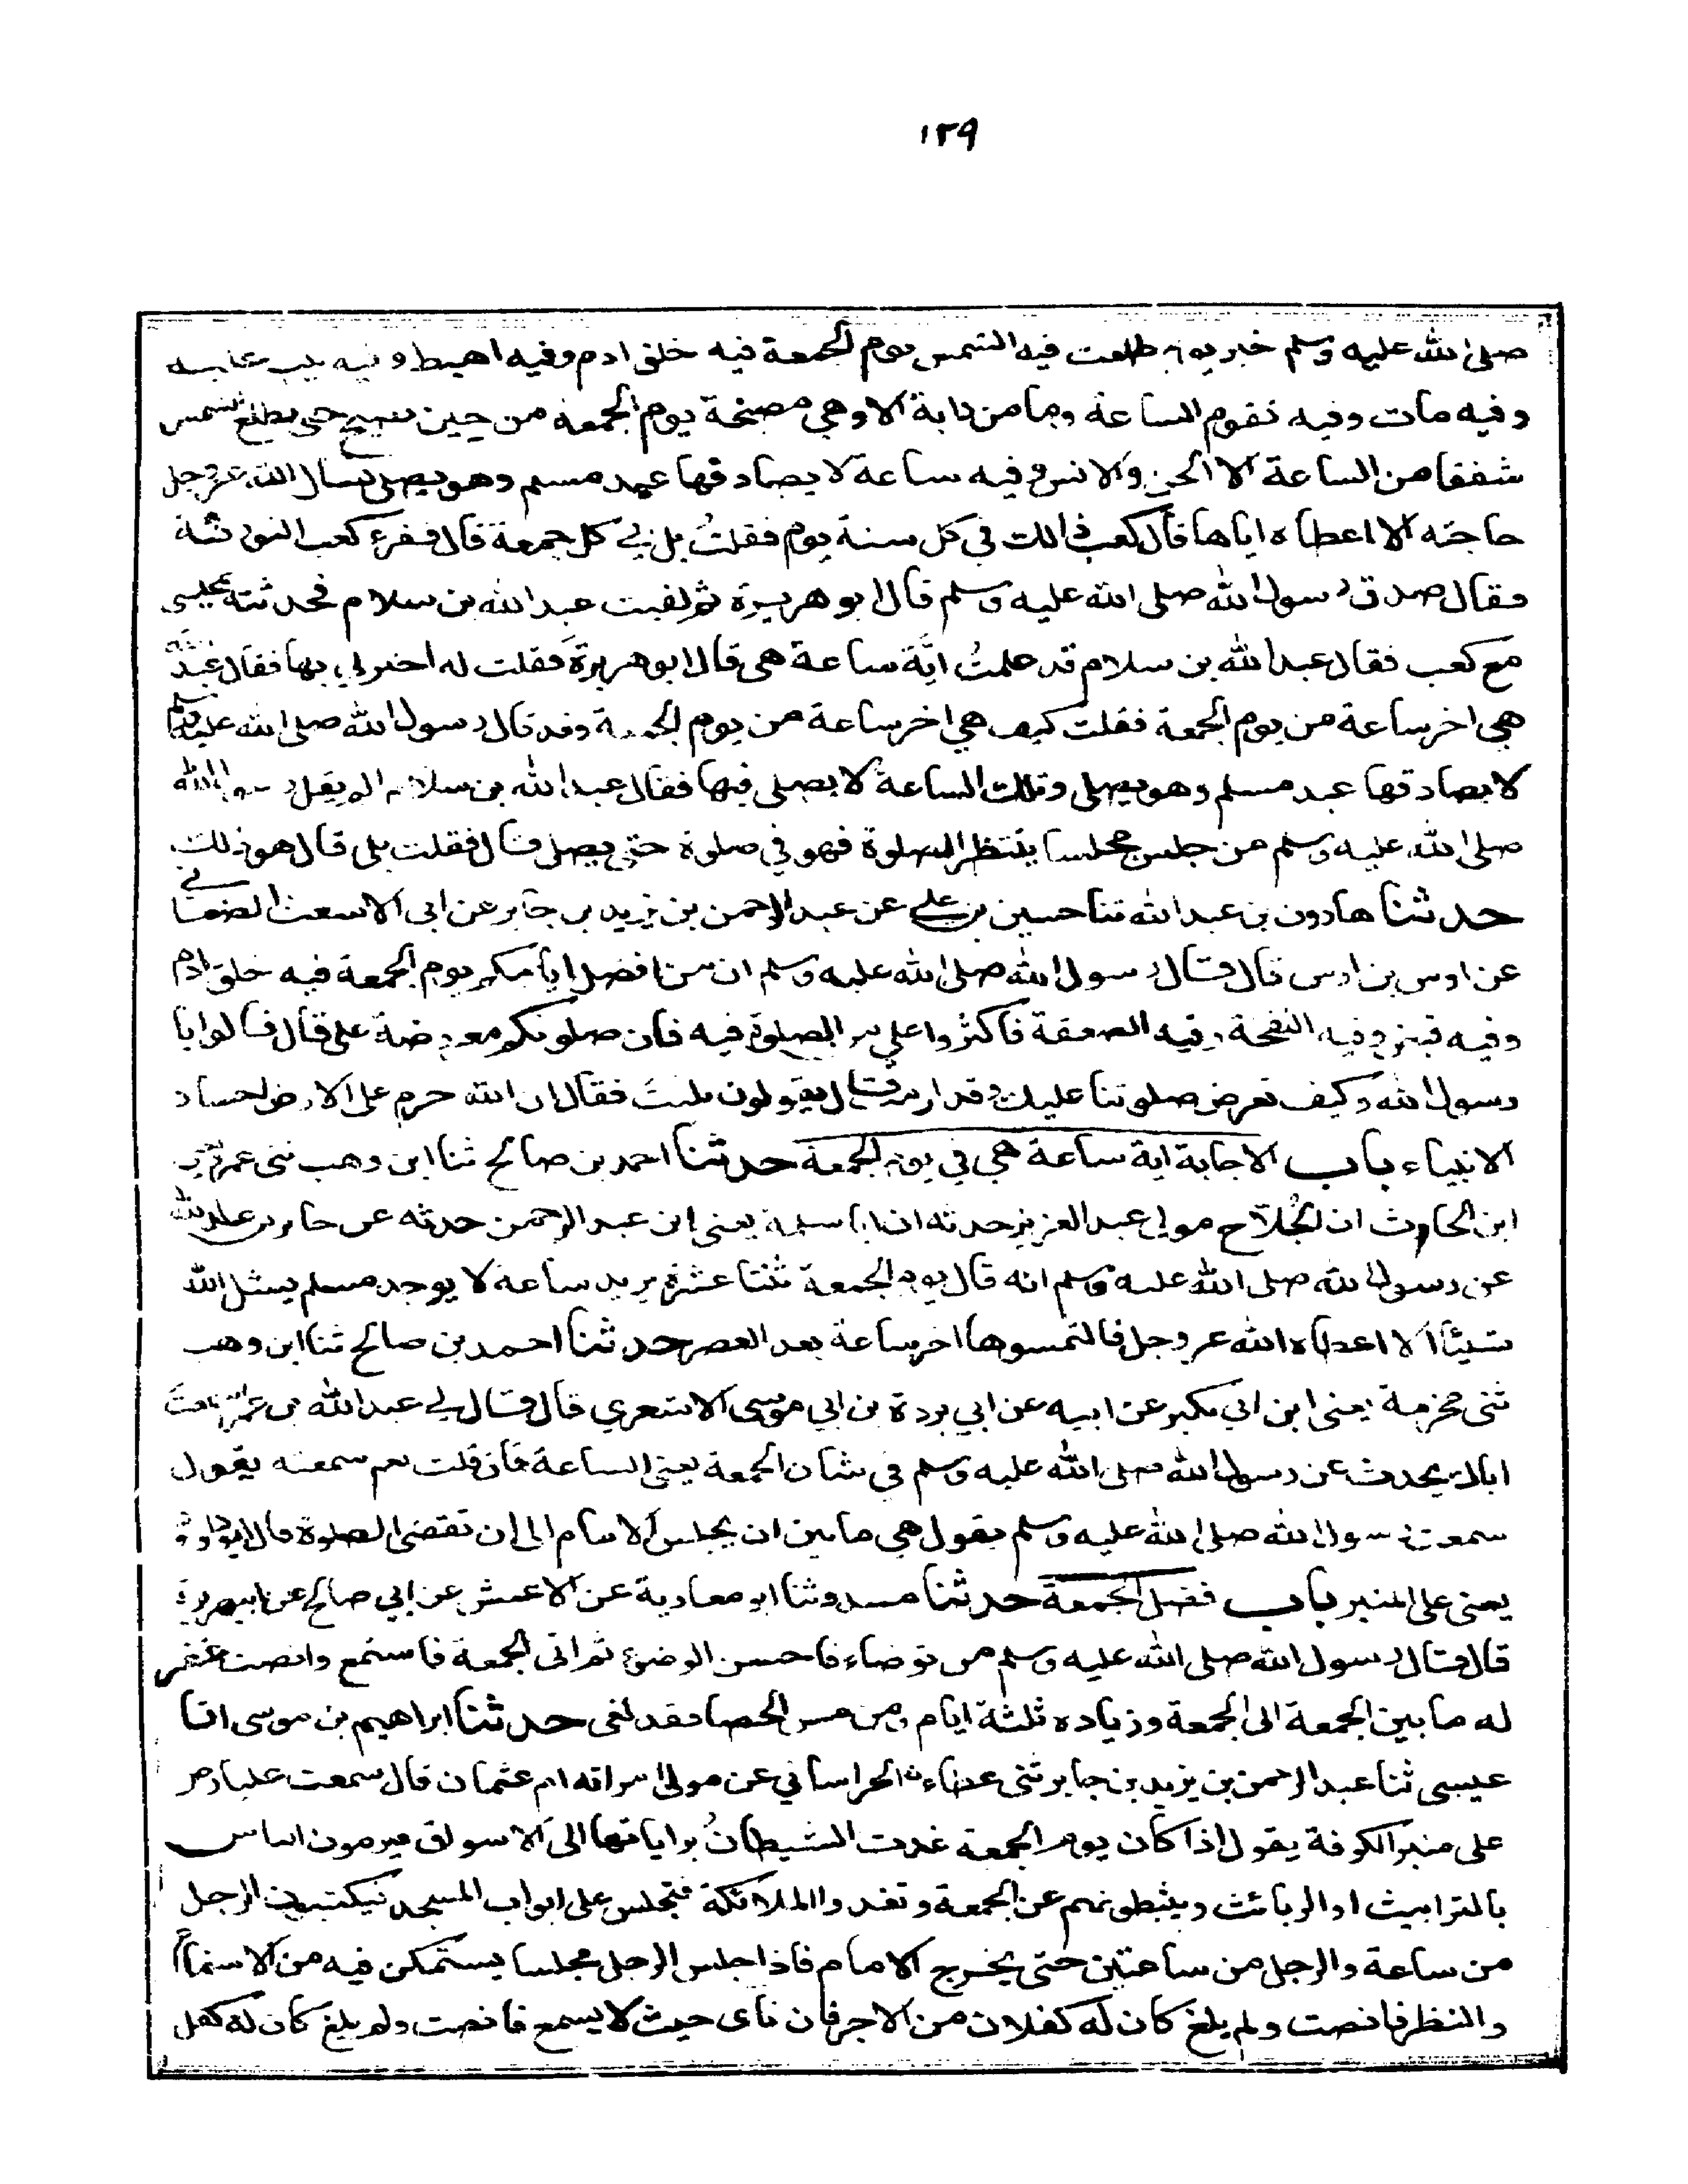 ١٢٩
صلى الله عليه وسلم خير يوم طلعت فيه الشمس يوم الجمعة فيه خلق ادم وفيه اهبط وفيه تيب عليه
وفيه مات وفيه تقوم الساعة وما من دابة الا وهي مصيخة يوم الجمعة من حين تصبح حتى تطلع الشمس
شفقا من الساعة الا الجن والانس وفيه ساعة لا يصادفها عبد مسلم وهو يصلى يسال الله عز وجل
حاجته الا اعطاه اياها قال كعب ذلك في كل سنة يوم فقلتُ بل في كل جمعة قال فقرء كعب التورىٰة
فقال صدق رسول الله صلى الله عليه وسلم قال ابو هريرة ثم لقيت عبد الله بن سلام فحدثته بمجلسى
مع كعب فقال عبد الله بن سلام قد علمتُ ايَّة ساعة هى قال ابو هريرةَ فقلت له اخبرني بها فقال عبد الله
هي اخر ساعة من يوم الجمعة فقلت كيف هي اخر ساعة من يوم الجمعة وقد قال رسول الله صلى الله عليه وسلم
لا يصادفها عبد مسلم وهو يصلى وتلك الساعة لا يصلى فيها فقال عبد الله بن سلام الم يقل رسول الله
صلى الله عليه وسلم من جلس مجلسا ينتظر الصلوة فهو في صلوة حتى يصلى قال فقلت بلى قال هو ذلك
حدثنا هارون بن عبد الله ثنا حسين بن علي عن عبد الرحمن بن يزيد بن جابر عن ابى الاشعث الصنعاني
عن اوس بن اوس قال قال رسول الله صلى الله عليه وسلم ان من افضل ايامكم يوم الجمعة فيه خلق ادم
وفيه قبض وفيه النفخة وفيه الصعقة فاكثروا علي من الصلوة فيه فان صلوتكم معروضة على قال قالوا يا
رسول الله وكيف تعرض صلوتنا عليك وقد ارمت قال يقولون بليتَ فقال ان الله حرم على الارض اجساد
الانبياء باب الاجابة اية ساعة هي في يوم الجمعة حدثنا احمد بن صالح ثنا ابن وهب ثنى عمرو يعنى
ابن الحارث ان الجُلاّح مولى عبد العزيز حدثه ان ابا سلمة يعنى ابن عبد الرحمن حدثه عن جابر بن عبد الله
عن رسول الله صلى الله عليه وسلم انه قال يوم الجمعة ثنتا عشرة يريد ساعة لا يوجد مسلم يسئل الله
شيئًا الا اعطاه الله عز وجل فالتمسوها اخر ساعة بعد العصر حدثنا احمد بن صالح ثنا ابن وهب
ثنى مخرمة يعنى ابن ابي بكير عن ابيه عن ابي بردة بن ابي موسى الاشعري قال قال لي عبد الله بن عمر اسمعتَ
اباك يحدث عن رسول الله صلى الله عليه وسلم في شان الجمعة يعنى الساعة قال قلت نعم سمعته يقول
سمعت رسول الله صلى الله عليه وسلم يقول هي ما بين ان يجلس الامام الى ان تقضى الصلوة قال ابو داود
يعنى على المنبر باب فضل الجمعة حدثنا مسدد ثنا ابو معاوية عن الاعمش عن ابي صالح عن ابي هريرة
قال قال رسول الله صلى الله عليه وسلم من توضاء فاحسن الوضئ ثم اتى الجمعة فاستمع وانصت غفر
له ما بين الجمعة الى الجمعة وزياده ثلثة ايام ومن مس الحصا فقد لغى حدثنا ابراهيم بن موسى انا
عيسى ثنا عبد الرحمن بن يزيد بن جابر ثنى عطاء الخراساني عن مولى امراته ام عثمان قال سمعت عليا رضى
على منبر الكوفة يقول اذا كان يوم الجمعة غدت الشيطانُ براياتها الى الاسواق فيرمون الناس
بالترابيث او الربائث ويثبطونهم عن الجمعة وتغدوا الملائكة فتجلس على ابواب المسجد فيكتبون الرجل
من ساعة والرجل من ساعتين حتى يخرج الامام فاذا جلس الرجل مجلسا يستمكن فيه من الاستماع
والنظر فانصت ولم يلغ كان له كفلان من الاجر فان ناى حيث لا يسمع فانصت ولم يلغ كان له كفل